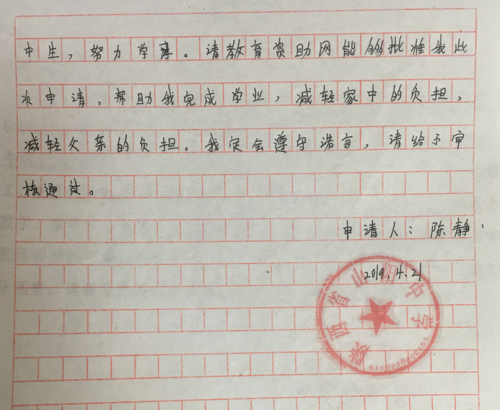 中生，努力学习。请教育资助网能够批准我此
次申请，帮助我完成学业，减轻家中的负担，
减轻父亲的负担。我定会遵守诺言，请给予审
核通过。
申请人：陈静
2014.4.21
陕西省山阳中学